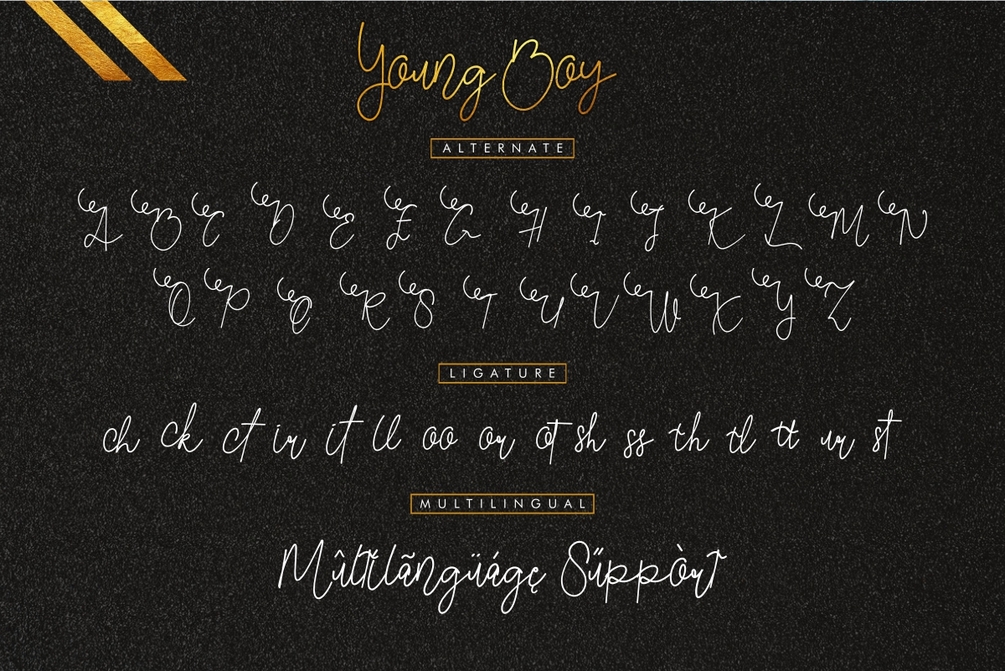 Young Boy
ALTERNATE
A B C D E F G H I J K L M N
O P Q R S T U V W X Y Z
LIGATURE
ch ck ct ir it ll oo or ot sh ss th tl tt ur st
MULTILINGUAL
Mûltĭlãngüágę Sűppòrt